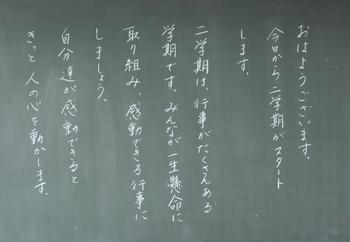 おはようございます。
今日から二学期がスタート
します。
二学期は、行事がたくさんある
学期です。みんなが一生懸命に
取り組み、感動できる行事に
しましょう。
自分達が感動できると
きっと人の心を動かします。